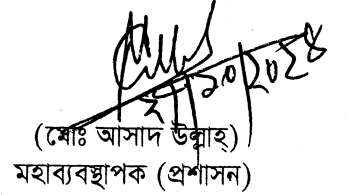 ২৭/১০/২০২৪
(মোঃ আসাদ উল্লাহ)
মহাব্যবস্থাপক (প্রশাসন)